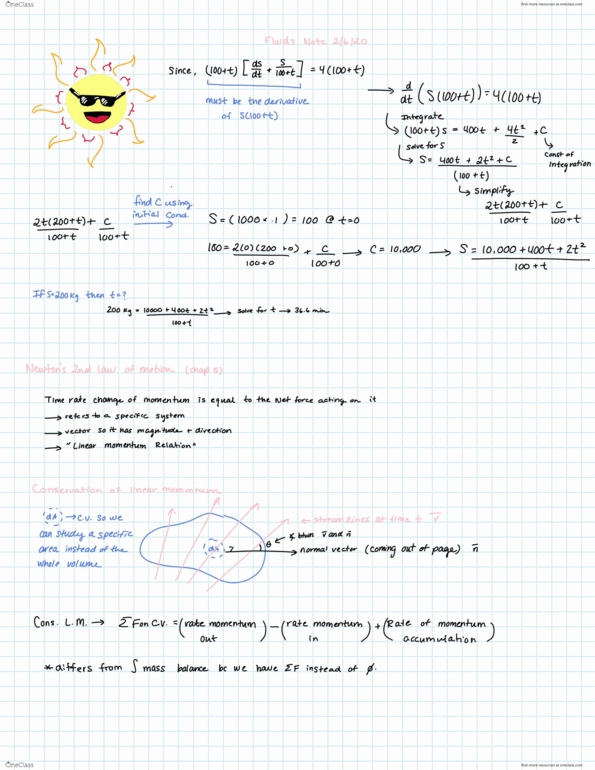 OneClass
find more resources at oneclass.com
Fluids Note 2/6/20
Since, (100+t) [ds/dt + S/100+t] = 4(100+t)
must be the derivative
of S(100+t)
→ d/dt (S(100+t)) = 4(100+t)
Integrate
→ (100+t)s = 400t + 4t²/2 + C
const of
integration
solve for S
→ S = 400t + 2t² + C / (100+t)
→ Simplify
2t(200+t)/100+t + C/100+t
2t(200+t)/100+t + C/100+t
find C using
initial cond.
S = (1000 × .1) = 100 @ t=0
100 = 2(0)(200+0)/100+0 + C/100+0 → C = 10,000 → S = 10,000+400t+2t²/100+t
If S=200kg then t=?
200 kg = 10000 + 400t + 2t²/100+t → solve for t → 36.6 min
Newton's 2nd law of motion (chap 5)
Time rate change of momentum is equal to the Net force acting on it
→ refers to a specific system
→ vector so it has magnitude + direction
→ "Linear momentum Relation"
Conservation of linear momentum
dA → C.V. So we
can study a specific
area instead of the
whole volume
← streamlines at time t V̅
θ ← ∡ btwn v̅ and n̅
dA
normal vector (coming out of page) n̅
Cons. L.M. → ΣF on C.V. = (rate momentum out) − (rate momentum in) + (Rate of momentum accumulation)
* differs from ∫ mass balance bc we have ΣF instead of ∅.
OneClass
find more resources at oneclass.com